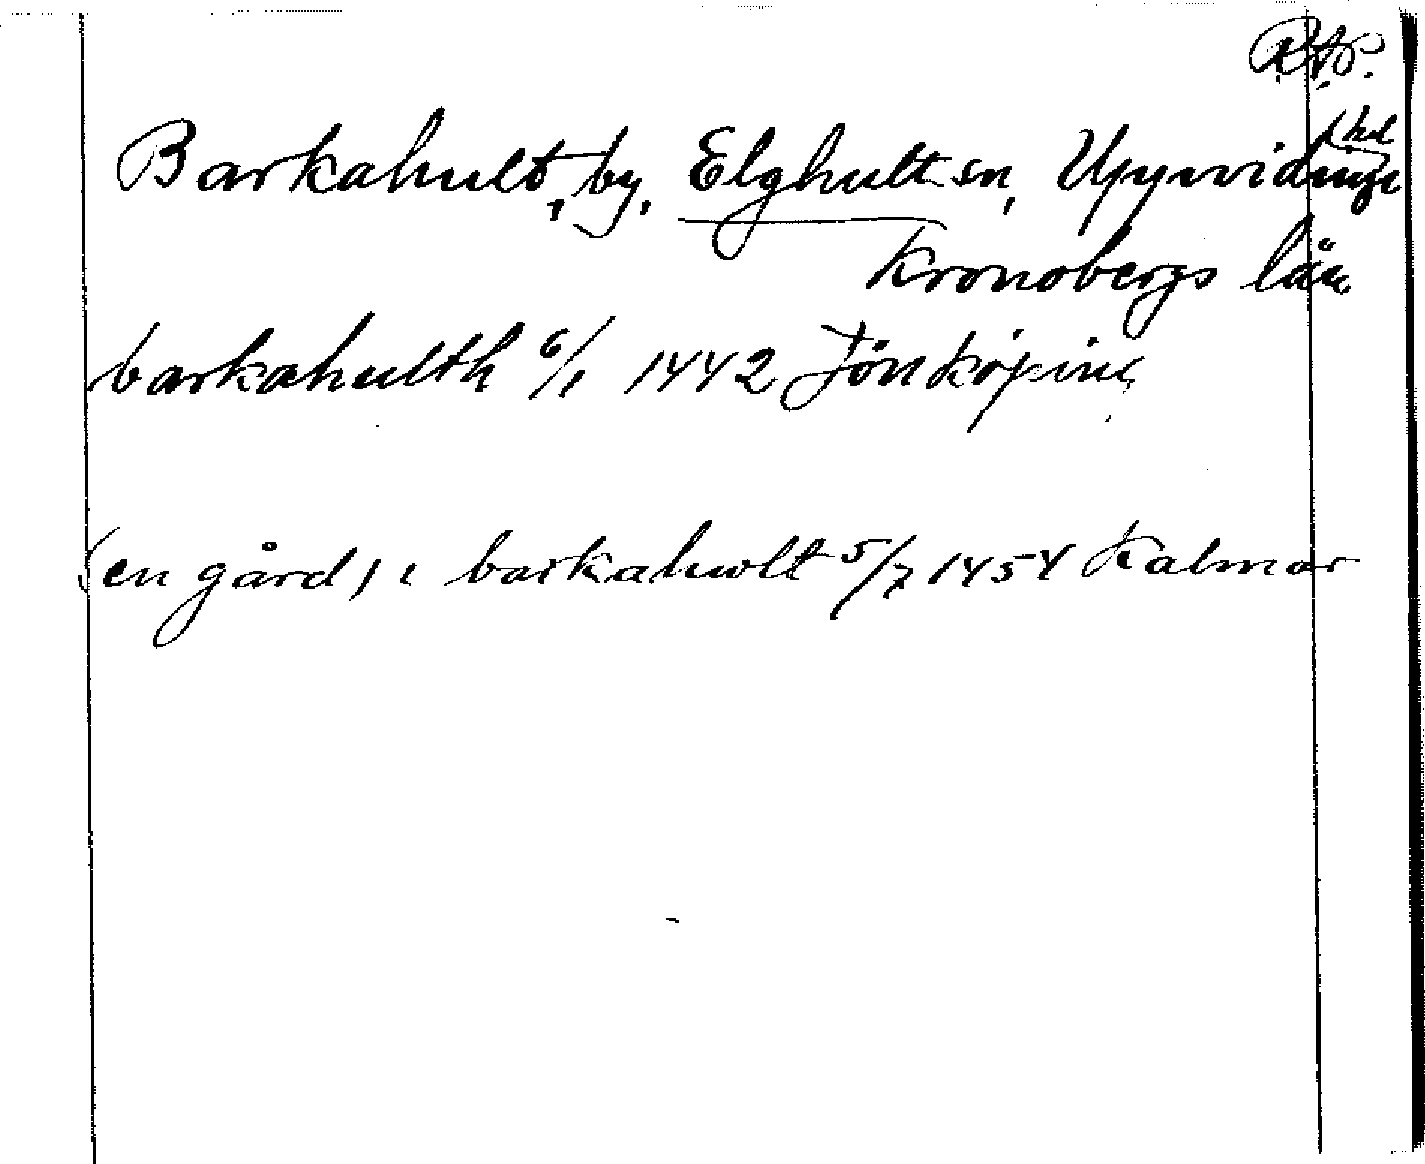 R.A.P.
Barkahult, by, Elghult sn, Uppvidinge hd
Kronobergs län
barkahulth 6/1 1442 Jönköping
(en gård) i barkahwlt 5/7 1454 Kalmar